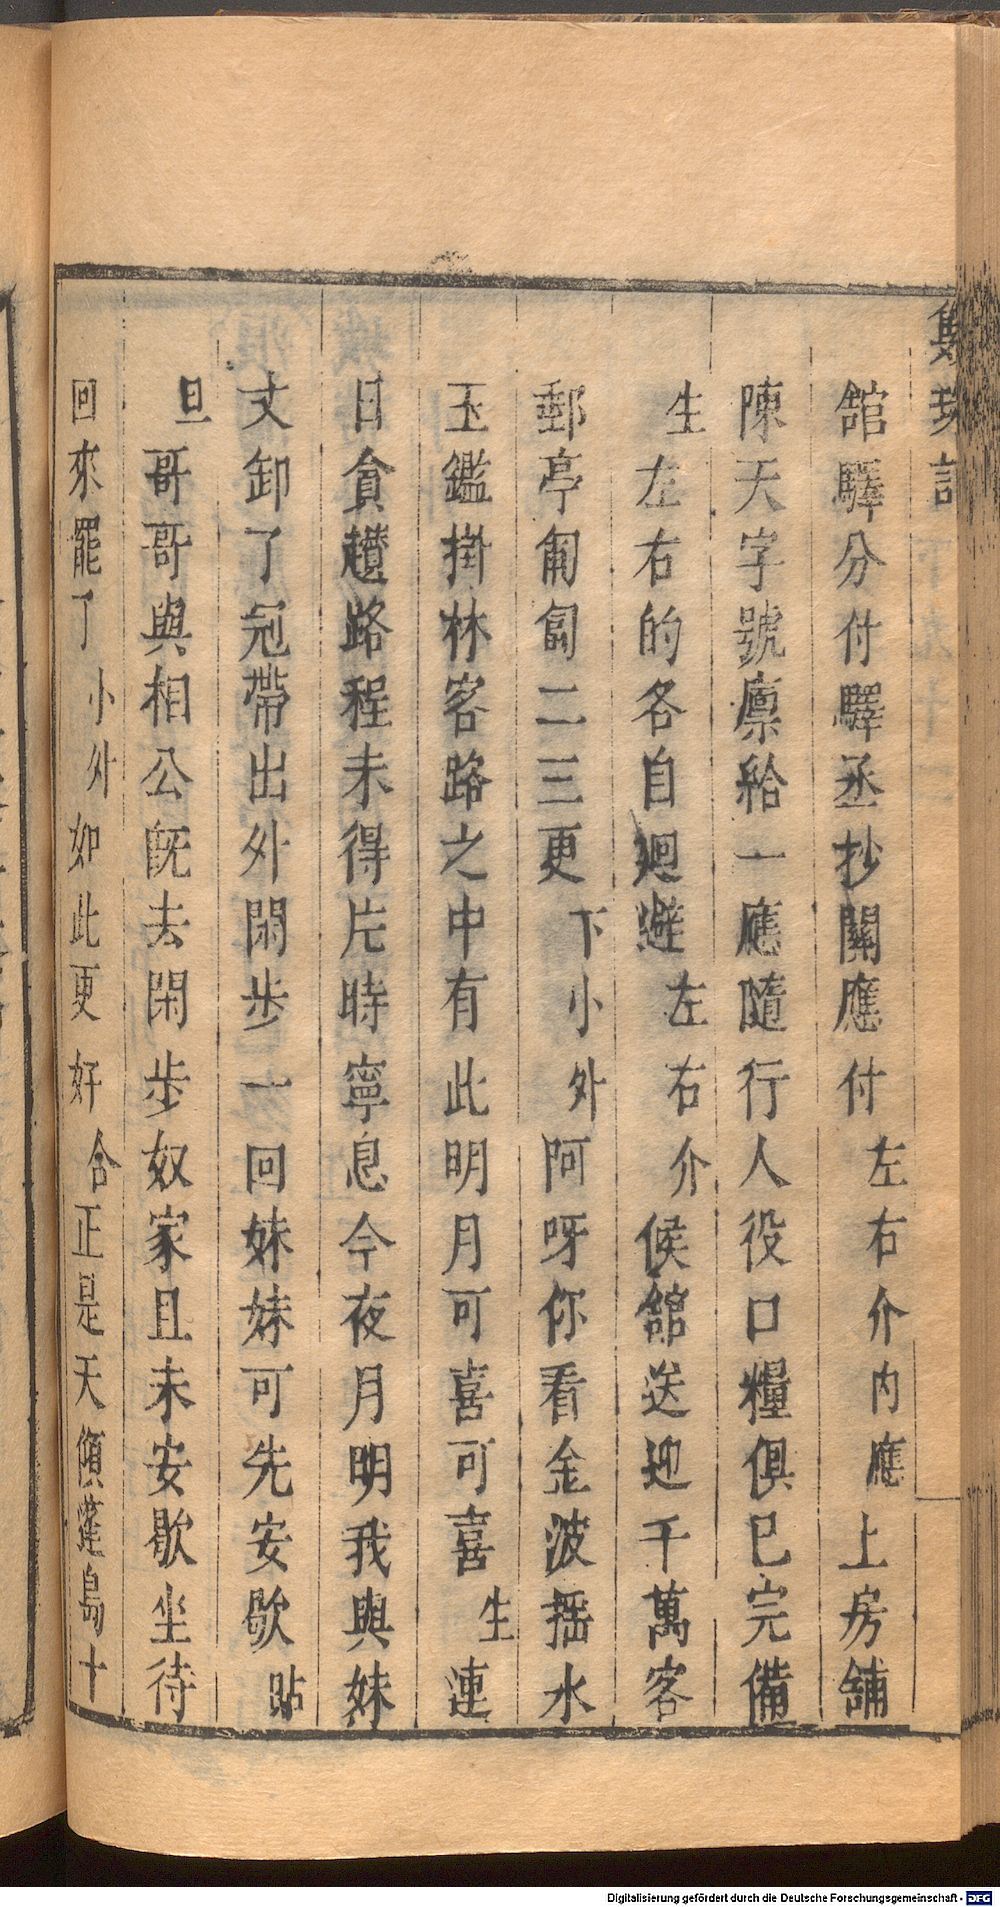 雙珠記
舘驛分付驛丞抄關應付左右介內應上房舖
陳天字號廪給一應隨行人役口糧俱已完備
生左右的各自廻避左右介候舘送迎千萬客
郵亭匍匐二三更下小外阿呀你看金波揺水
玉鑑掛林客路之中有此明月可喜可喜生連
日貪趲路程未得片時寧息今夜月明我與妹
丈卸了冠帶出外閑步一回妹妹可先安歇貼
旦哥哥與相公旣去閑步奴家且未安歇坐待
回來罷了小外如此更好合正是天傾蓬島十
Digitalisierung gefördert durch die Deutsche Forschungsgemeinschaft - DFG